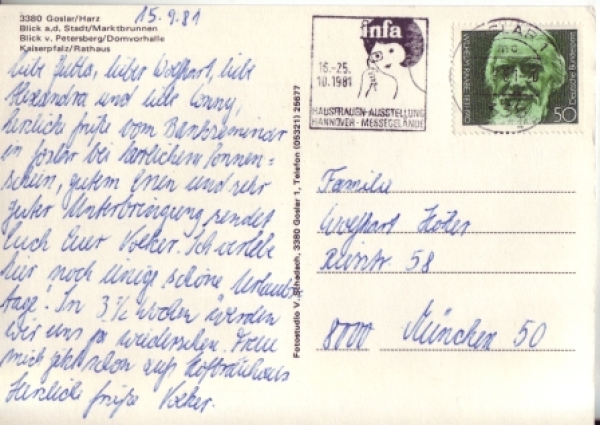 15.9.81
3380 Goslar/Harz
Blick a.d. Stadt/Marktbrunnen
Blick v. Petersberg/Domvorhalle
Kaiserpfalz/Rathaus
Liebe Jutta, lieber Wolfhart, liebe
Alexandra und liebe Conny,
herzliche Grüße vom Bankseminar
in Goslar bei herrlichem Sonnen=
schein, gutem Essen und sehr
guter Unterbringung sendet
Euch Euer Volker. Ich verlebe
hier noch einige schöne Urlaubs
tage. In 3 1/2 Wochen werden
wir uns ja wiedersehen. Freue
mich jetzt schon aufs Hofbräuhaus
Herzliche Grüße Volker.
Fotostudio V. Schadach, 3380 Goslar 1, Telefon (05321) 25677
infa
16.-25.
10.1981
HAUSFRAUEN-AUSSTELLUNG
HANNOVER - MESSEGELÄNDE
GOSLAR 1
WILHELM RAABE 1831-1910
Deutsche Bundespost
50
Familie
Wolfhart
58
8000 München 50